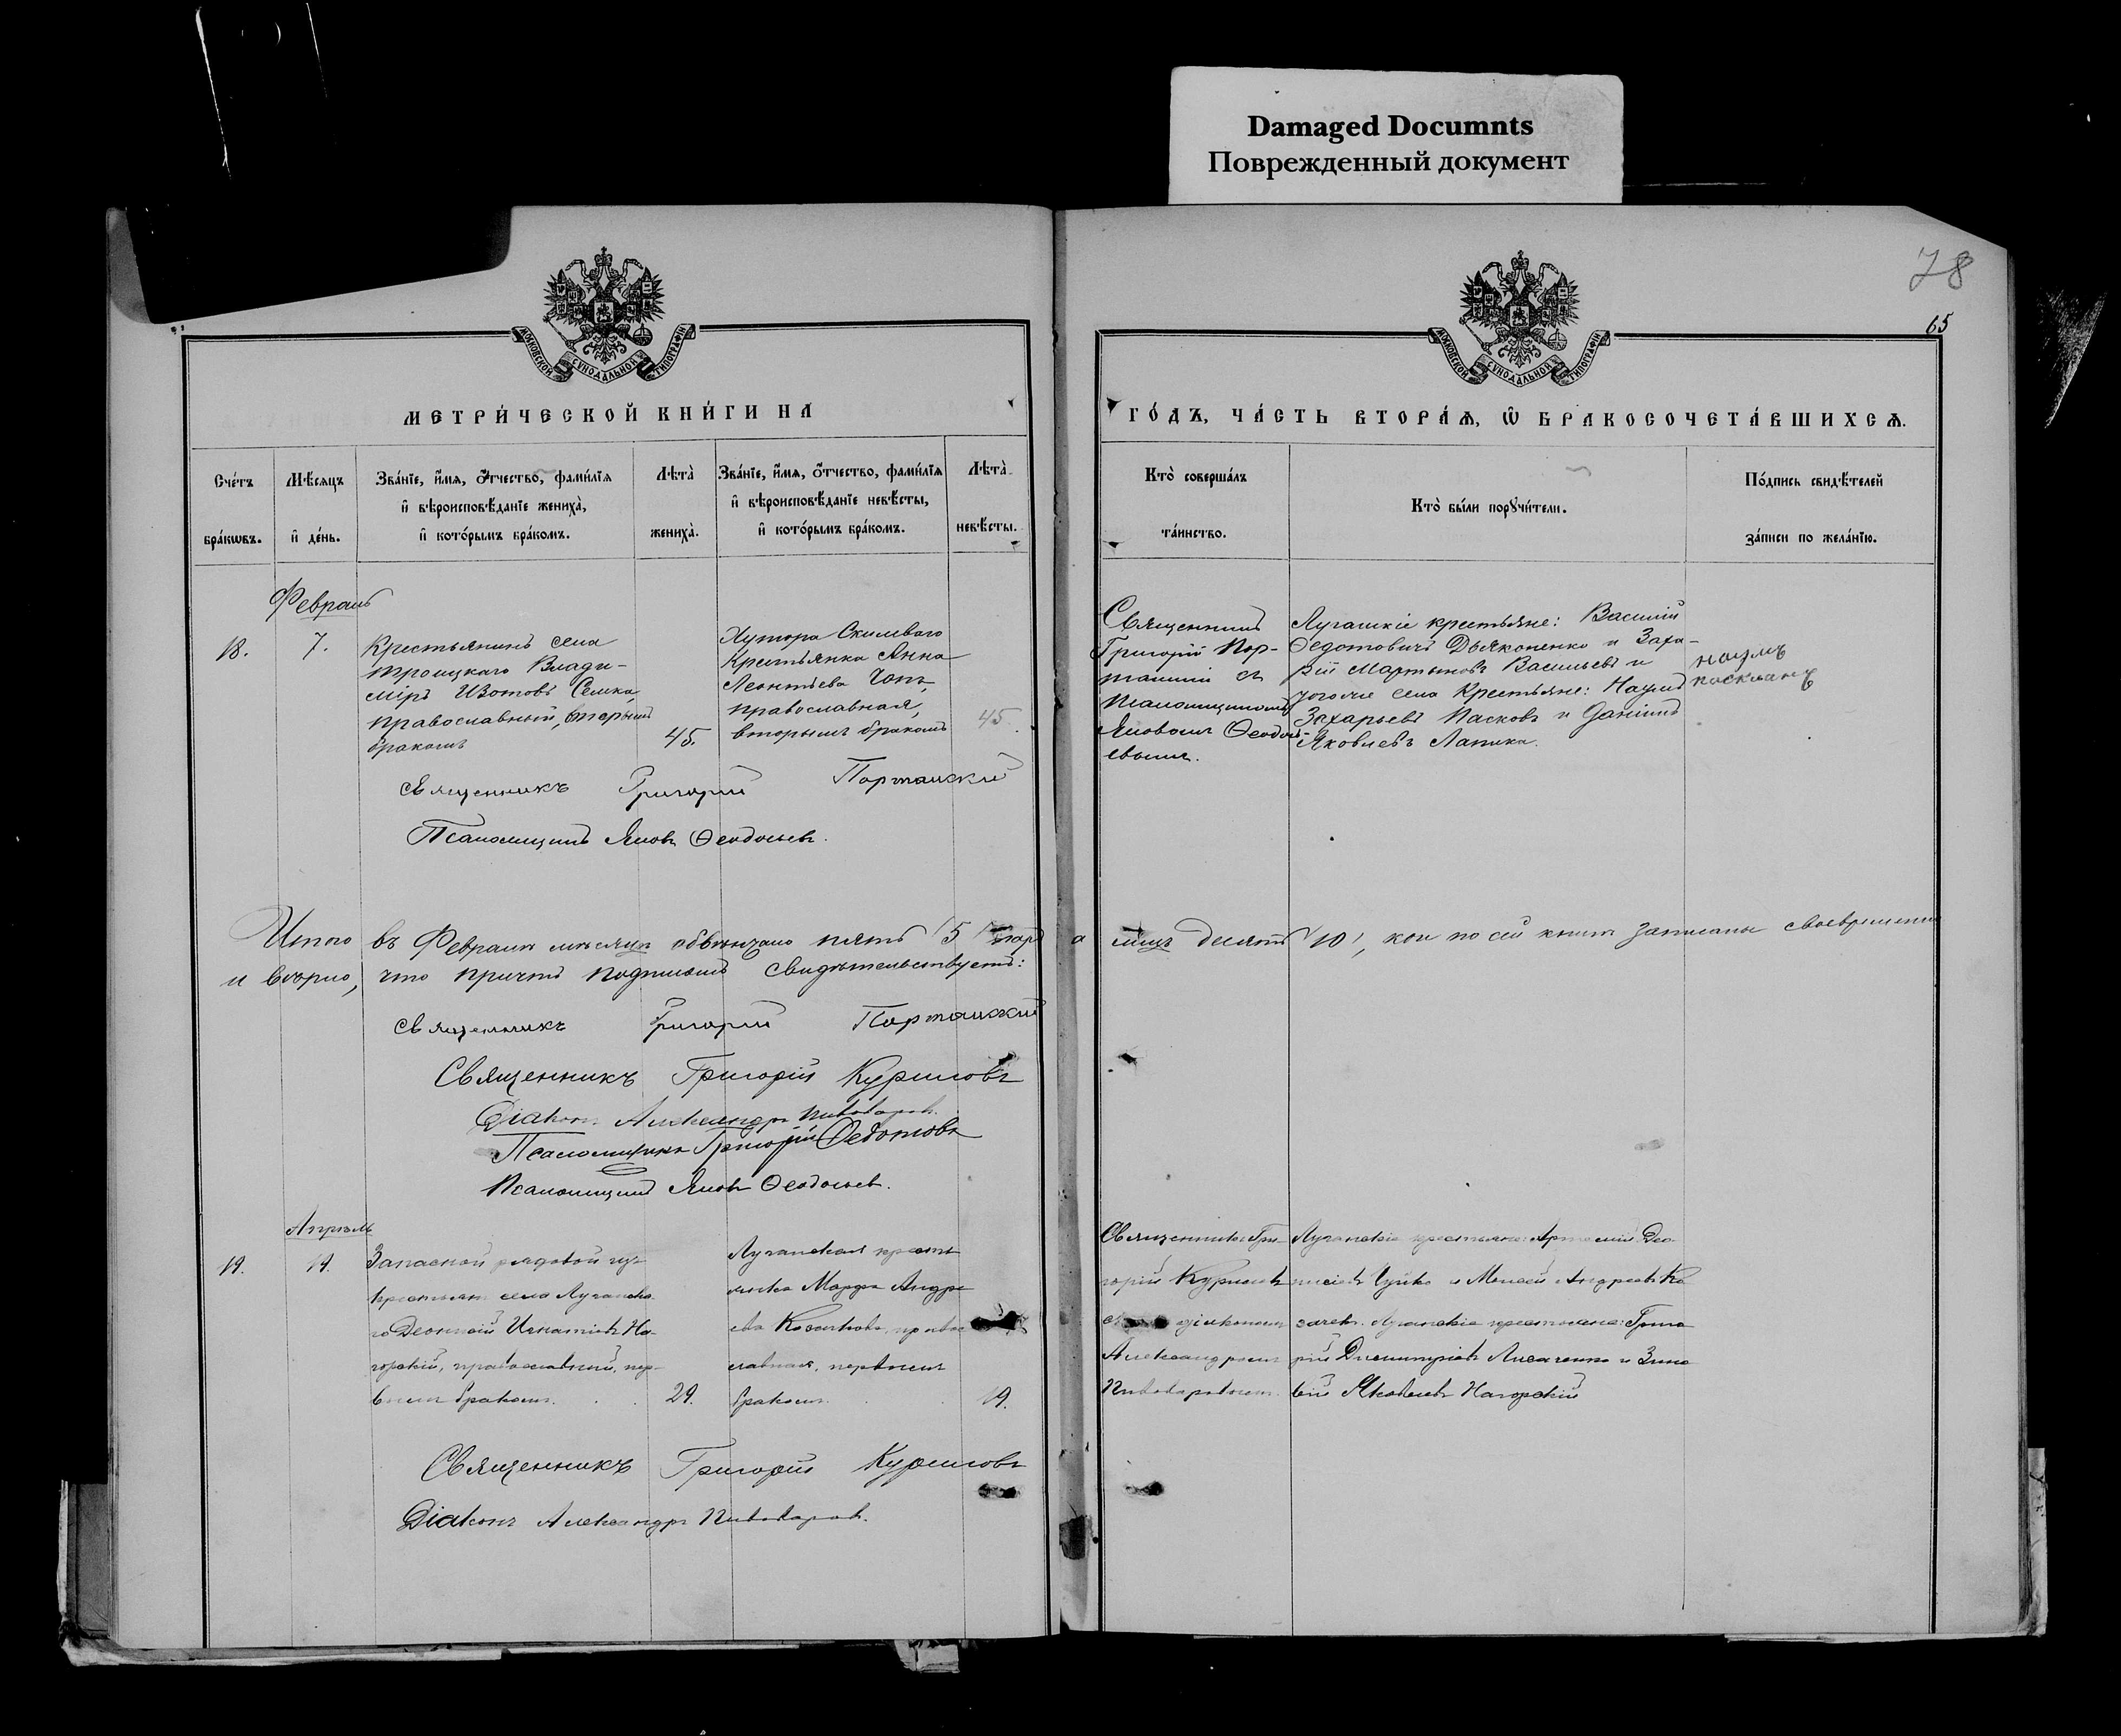 Damaged Documnts
Поврежденный документ
78
65
МОСКОВСКОЙ СѴНОДАЛЬНОЙ ТИПОГРАФІИ
МОСКОВСКОЙ СѴНОДАЛЬНОЙ ТИПОГРАФІИ
МЕТРИ́ЧЕСКОЙ КНИ́ГИ НА
ГО́ДЪ, ЧА́СТЬ ВТОРА́Я, Ѽ БРАКОСОЧЕТА́ВШИХСЯ.
Сче́тъ бра́кѡвъ.
Мѣ́сяцъ и҆ де́нь.
Зва́нїе, и҆́мя, ѻ҆́тчество, фамѝлїя
и҆ вѣроисповѣ́данїе жениха̀,
и҆ кото́рымъ бра́комъ.
Лѣта̀ жениха̀.
Зва́нїе, и҆́мя, ѻ҆́тчество, фамѝлїя
и҆ вѣроисповѣ́данїе невѣ́сты,
и҆ кото́рымъ бра́комъ.
Лѣта̀ невѣ́сты.
Кто̀ соверша́лъ та́инство.
Кто̀ бы́ли порꙋчи́тели.
По́дпись свидѣ́телей за́писи по жела́нїю.
Февраль
18.
7.
Крестьянинъ села
Троицкаго Влади-
міръ Изотовъ Семка,
православный, вторымъ
бракомъ
45.
Хутора Скилеваго
Крестьянка Анна
Леонтьева Чопъ,
православная,
вторымъ бракомъ
45.
Священникъ
Григорій Пор-
танскій съ
Псаломщикомъ
Яковомъ Ѳеодось-
евымъ.
Луганскіе крестьяне: Василій
Ѳедотовичъ Дьяконенко и Заха-
рій Мартыновъ Васильевъ и
того же села Крестьяне: Наумъ
Захарьевъ Пасковъ и Даніилъ
Яковлевъ Лапика.
наумъ
Священникъ Григорій Портанскій
Псаломщикъ Яковъ Ѳеодосьевъ.
Итого въ Февралѣ мѣсяцѣ обвѣнчано пять /5/ пар а лицъ десять /10/, кои по сей книгѣ записаны своевременно
и вѣрно, что причтъ подписомъ свидѣтельствуетъ:
Священникъ Григорій Портанскій
Священникъ Григорій Куриловъ
Діаконъ Александръ Пивоваровъ.
Псаломщикъ Григорій Ѳедотовъ
Псаломщикъ Яковъ Ѳеодосьевъ.
Апрѣль
19.
19.
Запасной рядовой изъ
крестьянъ села Луганска-
го Леонтій Игнатіевъ На-
горскій, православный, пер-
вымъ бракомъ.
29.
Луганская кресть-
янка Марфа Андре-
ева Козачкова, право-
славная, первымъ
бракомъ.
19.
Священникъ Гри-
горій Куриловъ
съ діакономъ
Александромъ
Пивоваровымъ.
Луганскіе крестьяне: Артемій Део-
нисіевъ Чуйко и Моисей Андреевъ Ко-
зачекъ. Луганскіе крестьяне: Григо-
рій Димитріевъ Лисаченко и Зино-
вій Яковлевъ Нагорскій
Священникъ Григорій Куриловъ
Діаконъ Александръ Пивоваровъ.